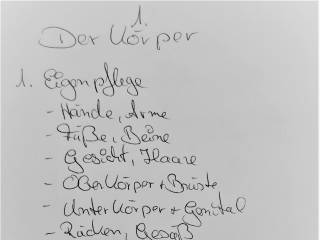 1.
Der Körper
1. Eigenpflege
- Hände, Arme
- Füße, Beine
- Gesicht, Haare
- Oberkörper + Brüste
- Unterkörper + Genital
- Rücken, Gesäß